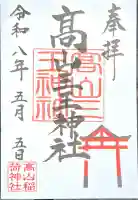 奉拝
髙山三王神社
高山三
王神社
令和八年五月五日
高山稲
荷神社